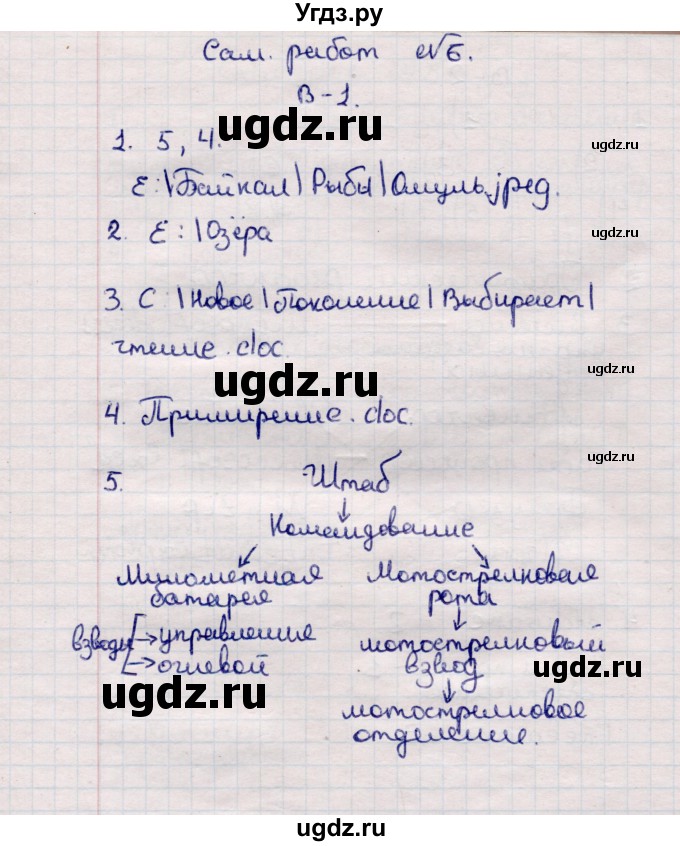 Угдз.ру
Сам. работ №6.
В-1.
ugdz.ru
ugdz.ru
1. 5, 4.
E:\Байкал\Рыбы\Омуль.jpeg.
2. E:\Озёра
ugdz.ru
3. C:\Новое\Поколение\Выбирает\
чтение.doc
ugdz.ru
ugdz.ru
4. Примирение.doc.
5. Штаб
ugdz.ru
Командование
Миномётная
батарея
Мотострелковая
рота
взводы
управление
огневой
мотострелковый
взвод
ugdz.ru
ugdz.ru
мотострелковое
отделение.
ugdz.ru